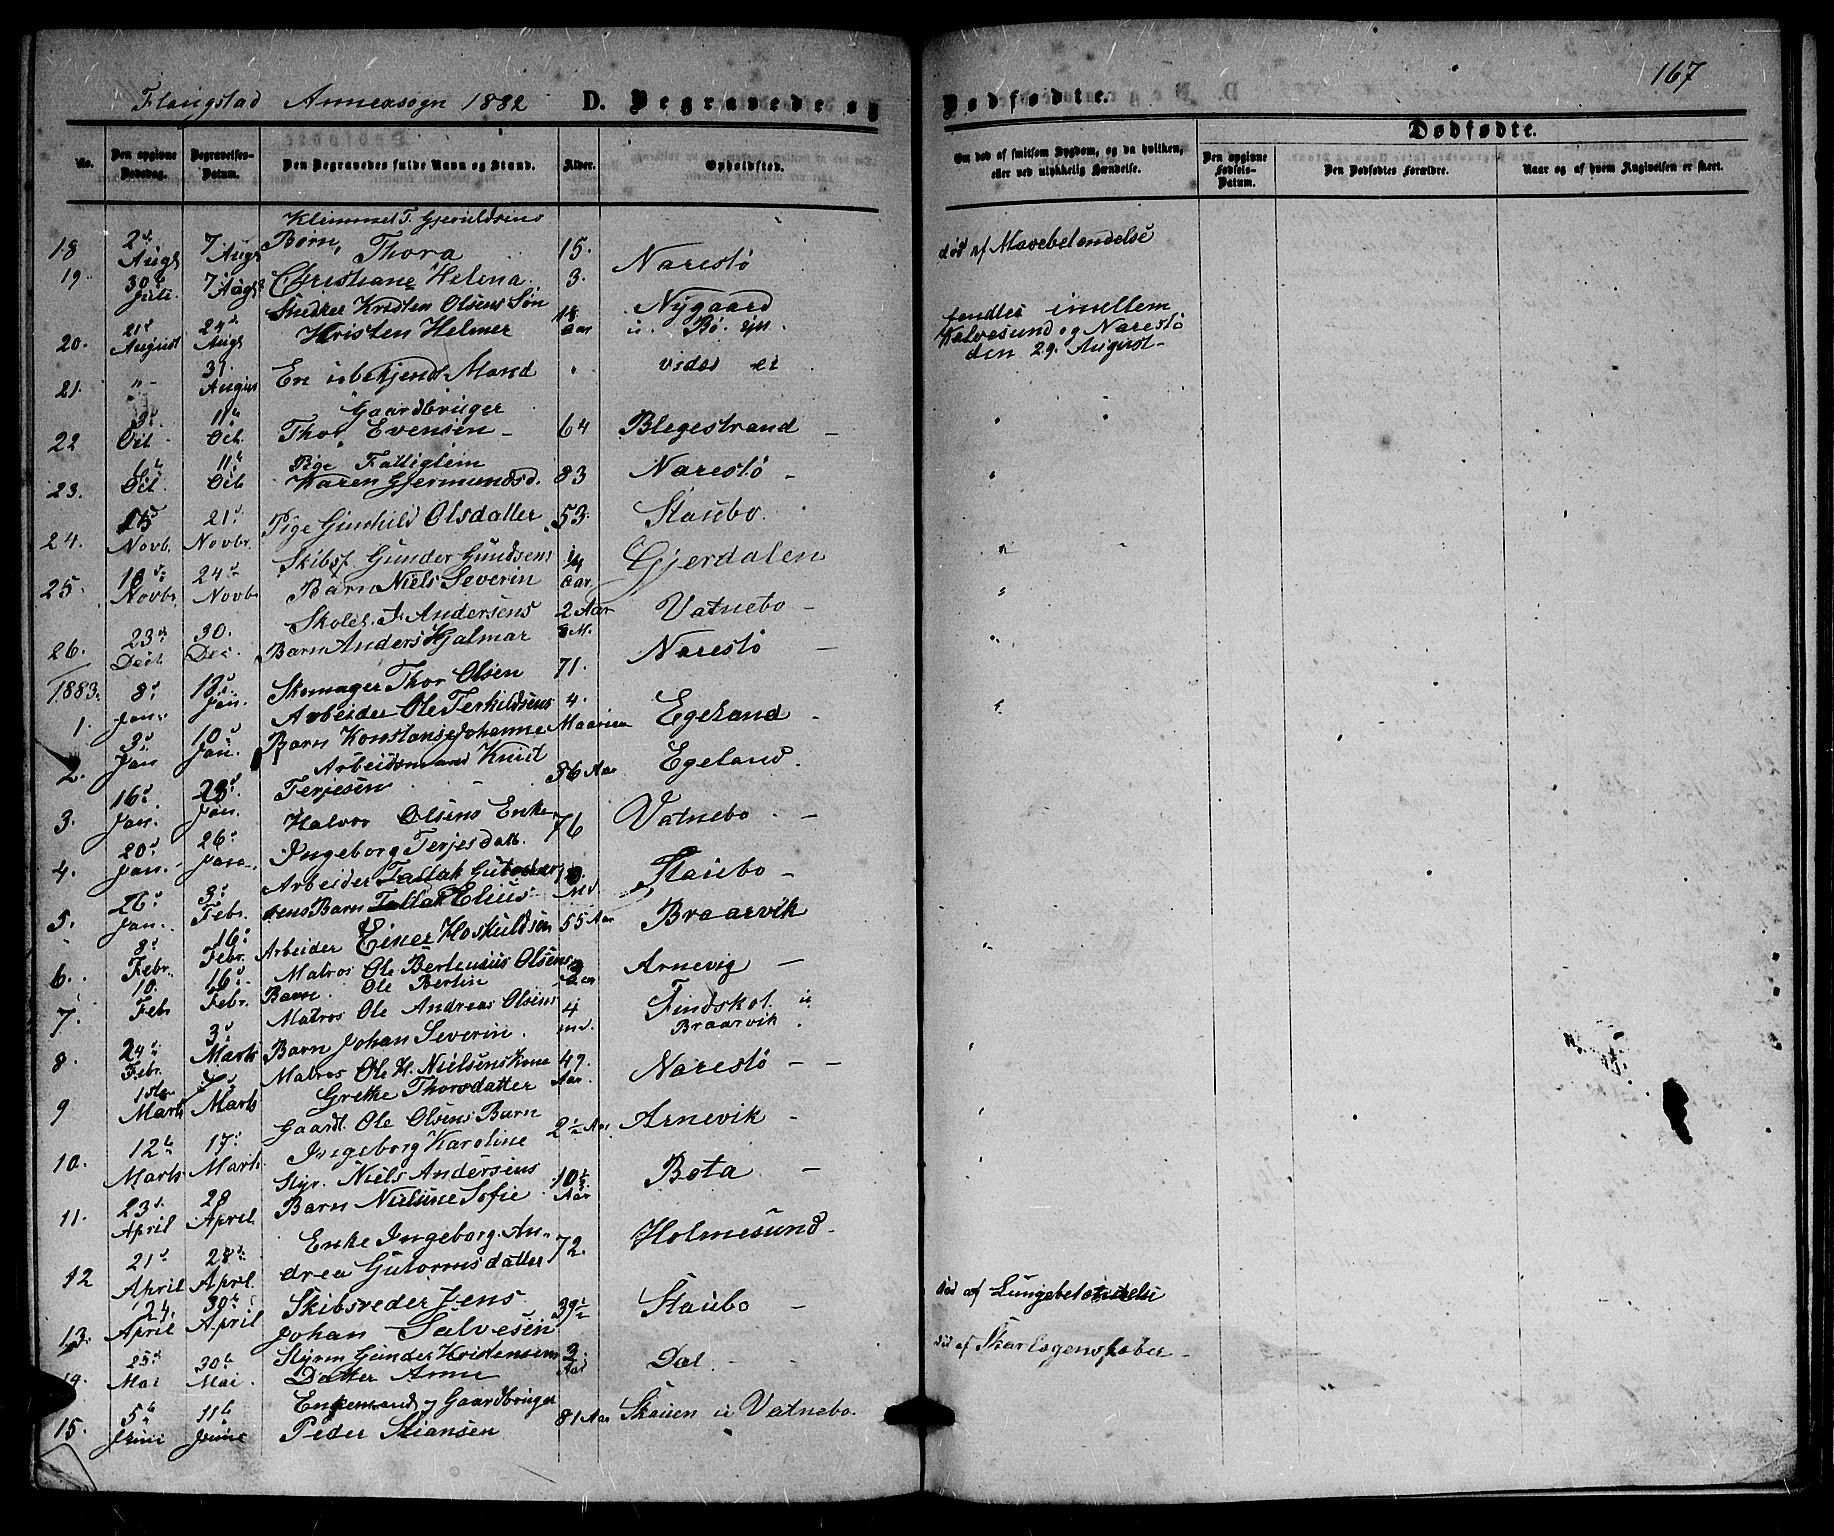 167
Flangstad Annexsogn 1882 D. Begravede og Dødfødte.
Dødfødte.
No. Den opgivne Dødsdag. Begravelses-Datum. Den Begravedes fulde Navn og Stand. Alder. Opholdssted.
Om død af smitsom Sygdom, og da hvilken, eller ved ulykkelig Hændelse. Den opgivne Fødsels-Datum. Den Dødfødtes Forældre. Naar og af hvem Angivelsen er skeet.
Klemmet T. Gjeruldsens
18 2d Augs 7 Augs Børn, Thora 15. Narestö död af Mavebetendelse
19 30te Juli. 7 Augs Christiane Helena. 3.
Kristen Olsens Sön Nygaard
20. 21d August 24d Augs Kristen Helmer 18 aar u. Bö. ejd.
fendtes imellem Kalvesund og Narestö den 29. August
21. " 31. August En ubekjendt Mand vides ei
Gaardbruger
22 3d Oct. 11te Oct. Thor Evensen 64 Blegestrand
Pige Fattiglem
23. 6te Oct. 11te Octb Karen Gjermundsd. 83 Narestö
24. 15 Novb. 21d Novbr. Pige Gunhild Olsdatter 53. Staubo.
Skibsf. Gunder Gundsens Gjerdalen
25. 18de Novbr. 24de Novbr Barn Niels Severin aar
Skolel. F. Andersens 2 Aar Vatnebo
26. 23de Decb 30. Dec. Barn Anders Hjalmar 8 M.
1883.
1. 8d Jan. 13d Jan. Skomager Thor Olsen 71. Narestö
Arbeider Ole Terkildsens 4. Egeland
2. 3d Jan 10d Jan. Barn Konstanse Johanne Maaneder
Arbeidsmand Knud Egeland.
3. 16d Jan. 23d Jan. Terjesen 36 Aar
Halvor Olsens Enke Vatnebo.
4. 20d Jan. 26d Jan. Ingeborg Terjesdatt. 76
Arbeider Tallak Staubo
5. 26d Jan. 3d Febr. Barn Tallak Elius Md.
6. 8d Febr. 16d Febr. Arbeider Einer Hoskuldsen 55 Aar Braarvik
Matros Ole Bertenius Olsens Arnevig
7. 10. Febr 16d Febr. Barn. Ole Bertin Aar
Matros Ole Andreas Olsens 4 Findskot. u
8. 24de Febr. 3d Marts Barn Johan Severin. md. Braarvik.
Matros Ole H. Nielsens Kone 47. Narestö
9 1ste Marts Marts Grethe Thorsdatter Aar.
Gaardt. Ole Olsens Barn 2½ Aar Arnevik
10. 12te Marts 17d Marts. Ingeborg Karoline
Styr. Niels Andersens 10½ Aar Bota
11. 23d April 28 April Barn Nielsine Sofie
Enke Ingeborg An- 72. Holmesund
12 21d April 28de April drea Gutormsdatter
13. 24. April 30te April Skibsreder Jens Johan Salvesen 39½ Staubo död af Lungebetendelse
14. 25d Mai 30te Mai Styrm Gunder Kristensens Datter Anne 3 Aar Dal. död af Skarlagensfeber
Enkemand og Gaardbruger
15. 5te Juni 11te Juni Peder Stiansen 81 Aar Skauen u Vatnebo.